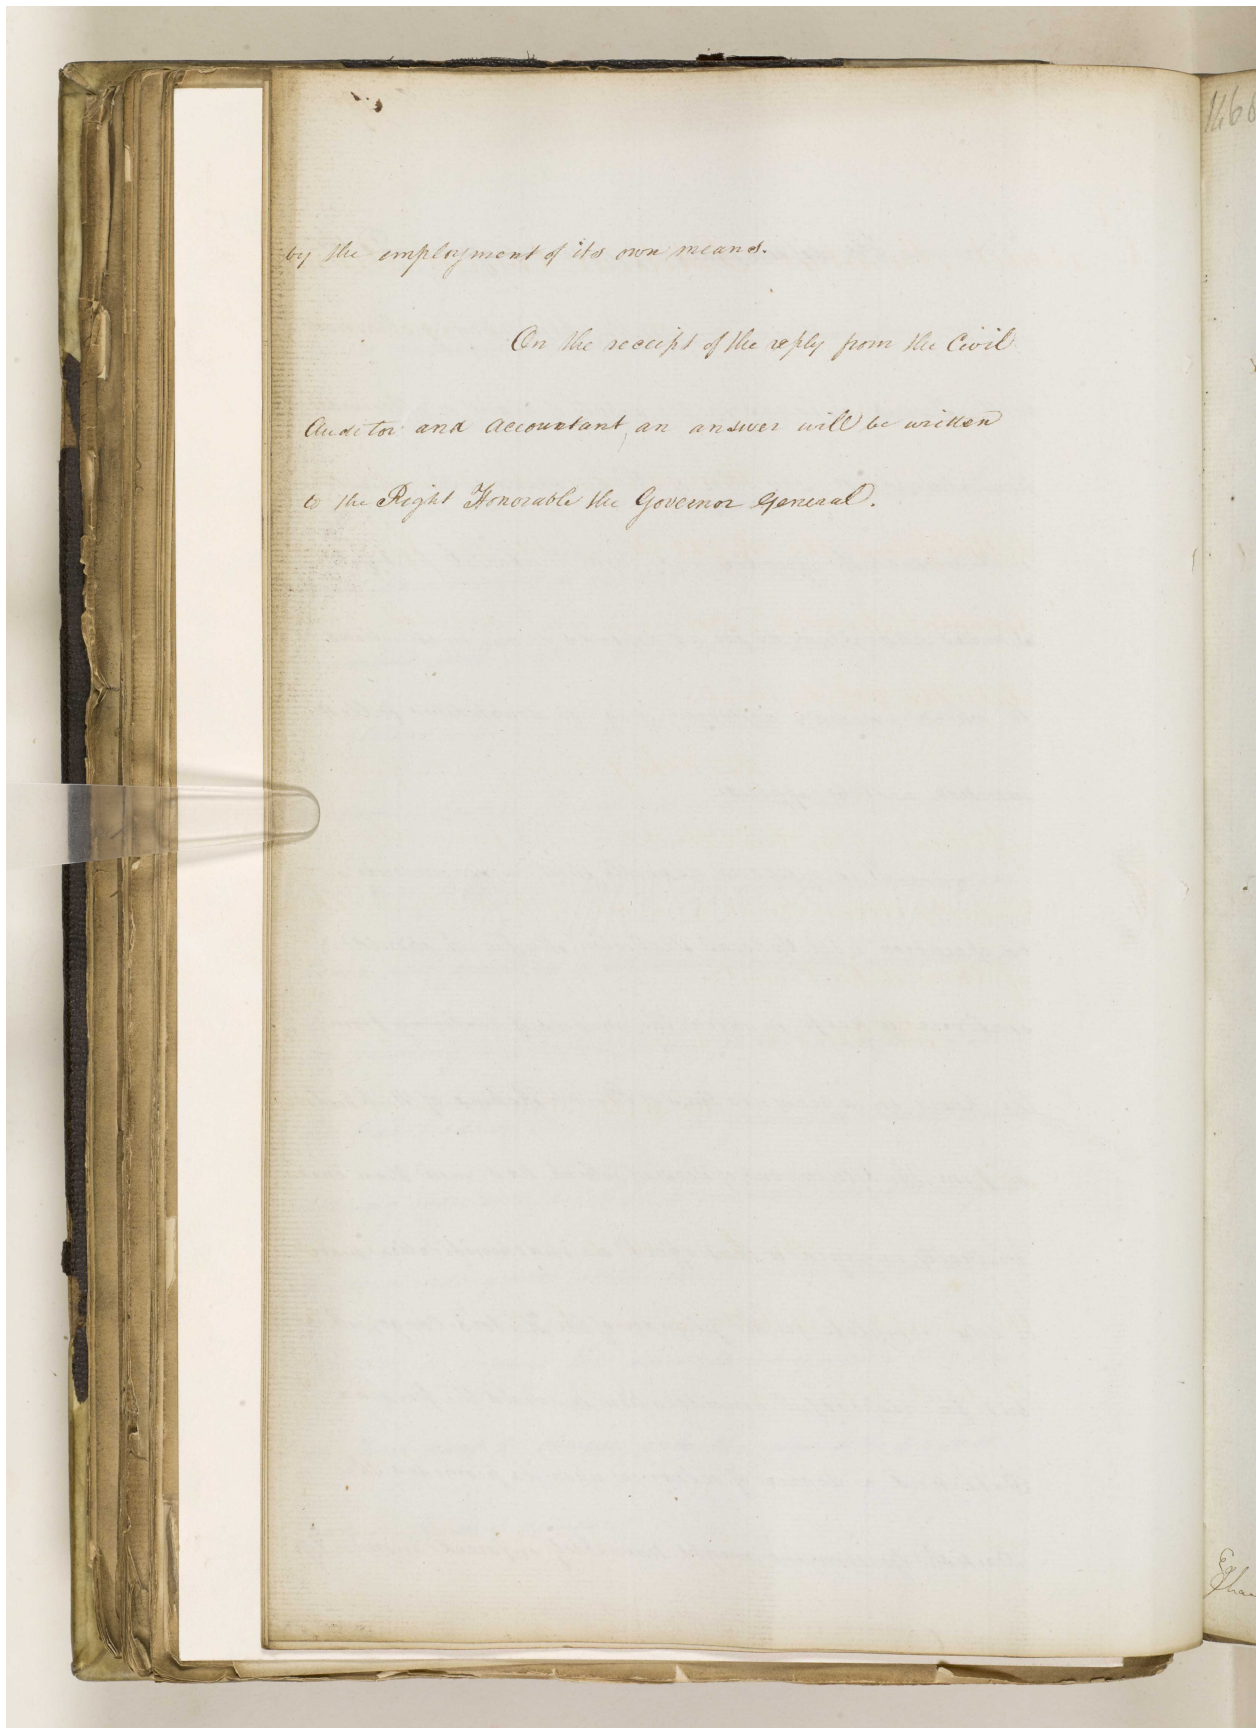 by the employment of its own means.
On the receipt of the reply from the Civil
Auditor and Accountant, an answer will be written
to the Right Honorable the Governor General.